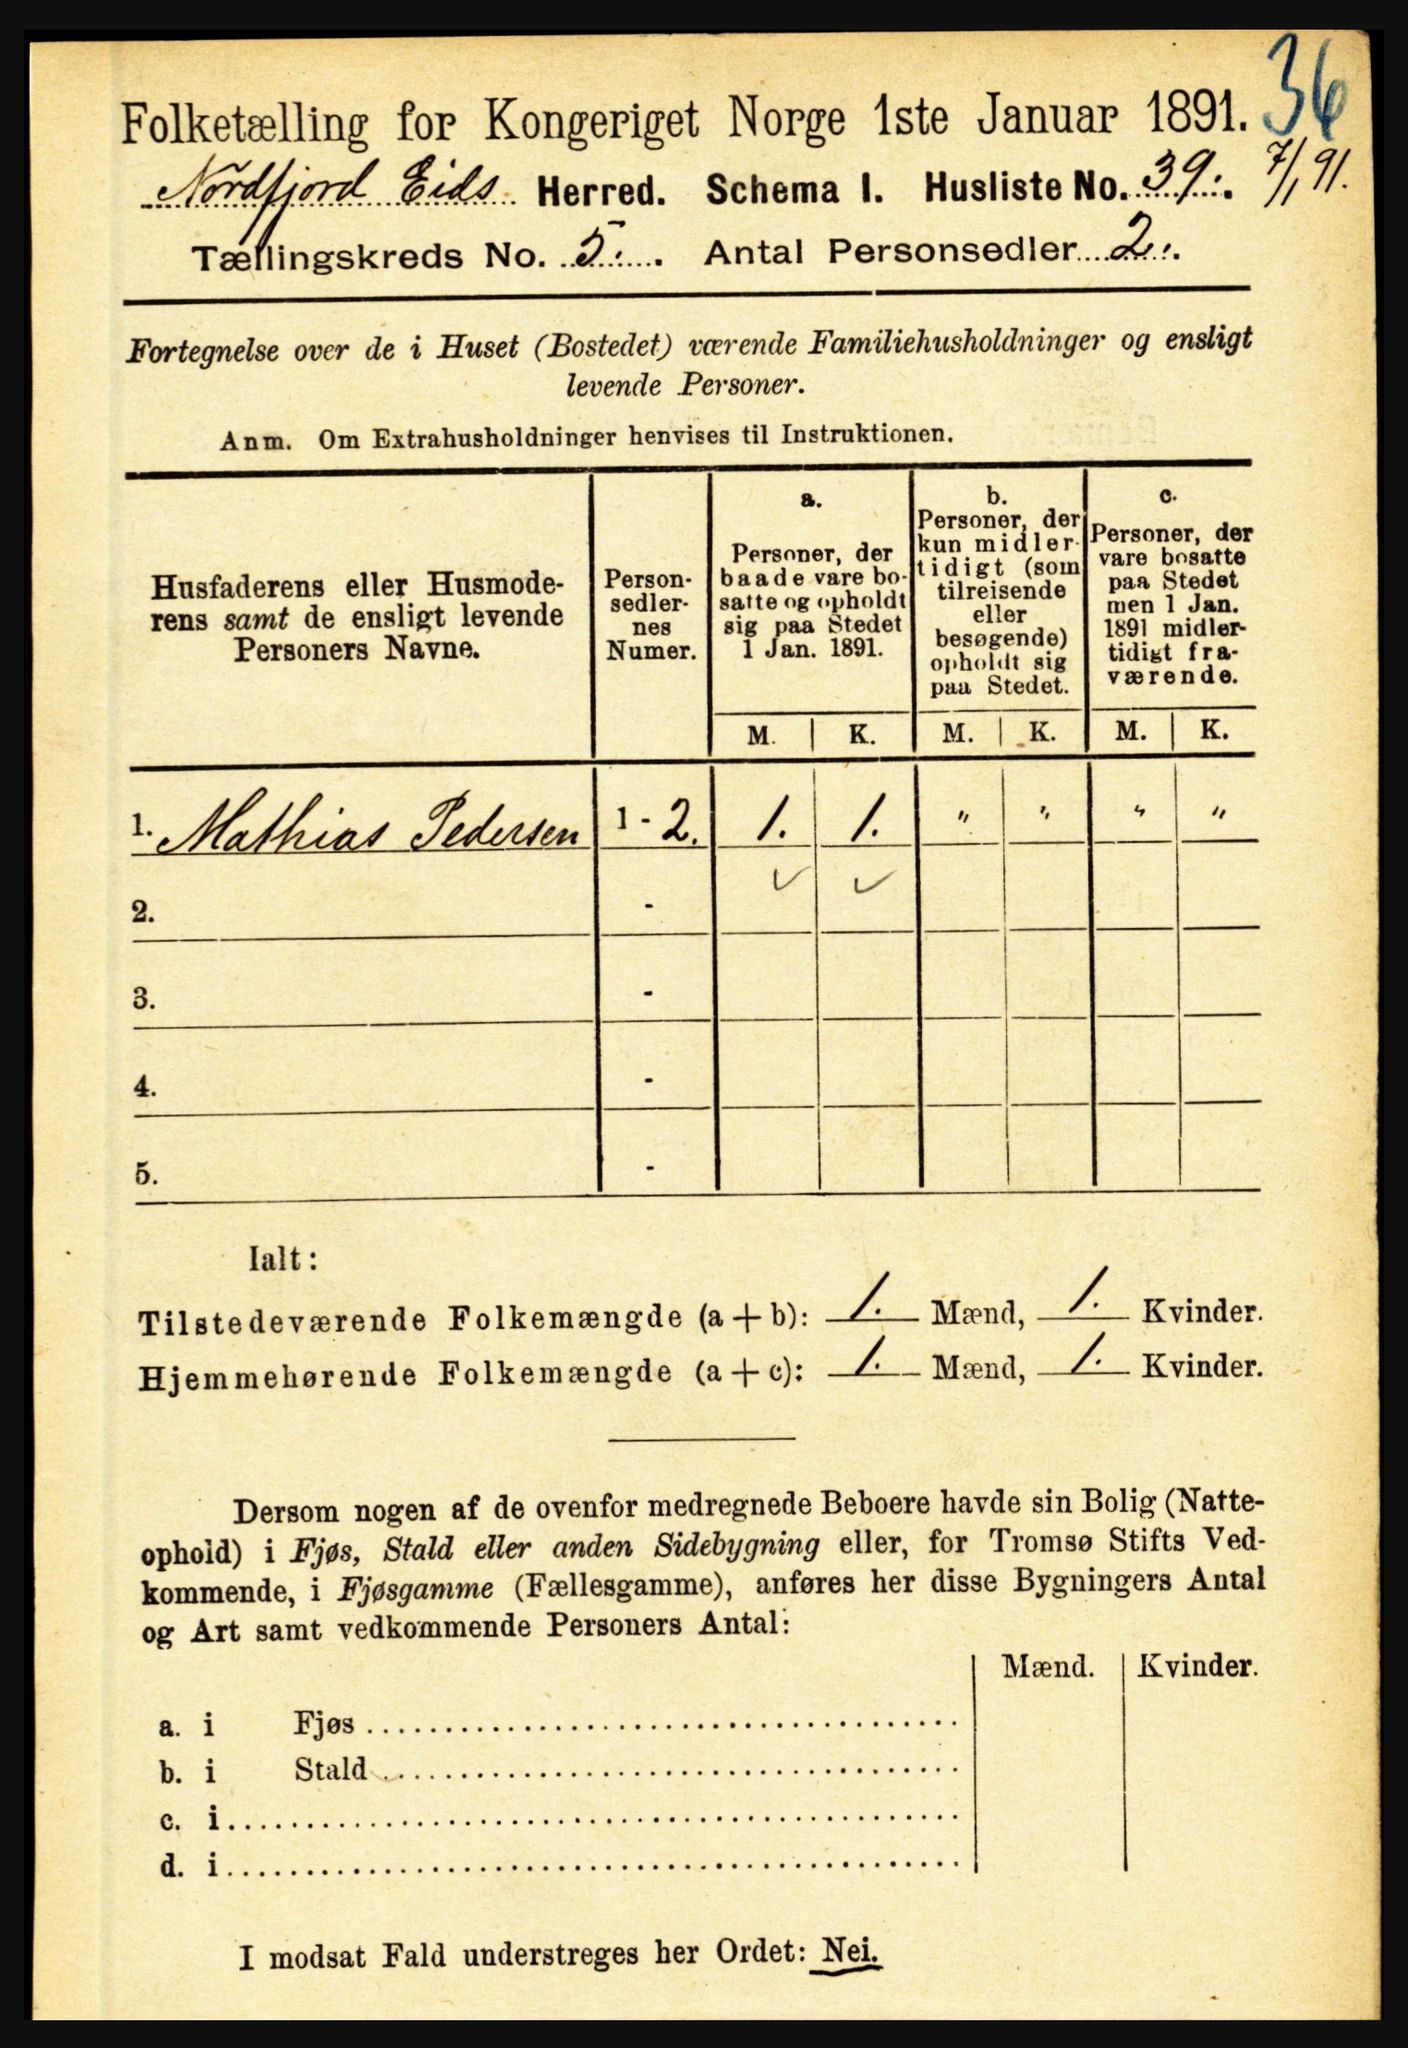 36
Folketælling for Kongeriget Norge 1ste Januar 1891.
7/1 91.
Nordfjord Eids Herred. Schema I. Husliste No. 39.
Tællingskreds No. 5. Antal Personsedler 2.
Fortegnelse over de i Huset (Bostedet) værende Familiehusholdninger og ensligt
levende Personer.
Anm. Om Extrahusholdninger henvises til Instruktionen.
Husfaderens eller Husmode-
rens samt de ensligt levende
Personers Navne.
Person-
sedler-
nes
Numer.
a.
Personer, der
baade vare bo-
satte og opholdt
sig paa Stedet
1 Jan. 1891.
b.
Personer, der
kun midler-
tidigt (som
tilreisende
eller
besøgende)
opholdt sig
paa Stedet.
c.
Personer, der
vare bosatte
paa Stedet
men 1 Jan.
1891 midler-
tidigt fra-
værende.
M. K. M. K. M. K.
1. Mathias Pedersen 1 - 2. 1. 1. " " " "
2. - ✓ ✓
3. -
4. -
5. -
Ialt:
Tilstedeværende Folkemængde (a + b): 1. Mænd, 1. Kvinder.
Hjemmehørende Folkemængde (a + c): 1. Mænd, 1. Kvinder.
Dersom nogen af de ovenfor medregnede Beboere havde sin Bolig (Natte-
ophold) i Fjøs, Stald eller anden Sidebygning eller, for Tromsø Stifts Ved-
kommende, i Fjøsgamme (Fællesgamme), anføres her disse Bygningers Antal
og Art samt vedkommende Personers Antal:
Mænd. Kvinder.
a. i Fjøs
b. i Stald
c. i
d. i
I modsat Fald understreges her Ordet: Nei.